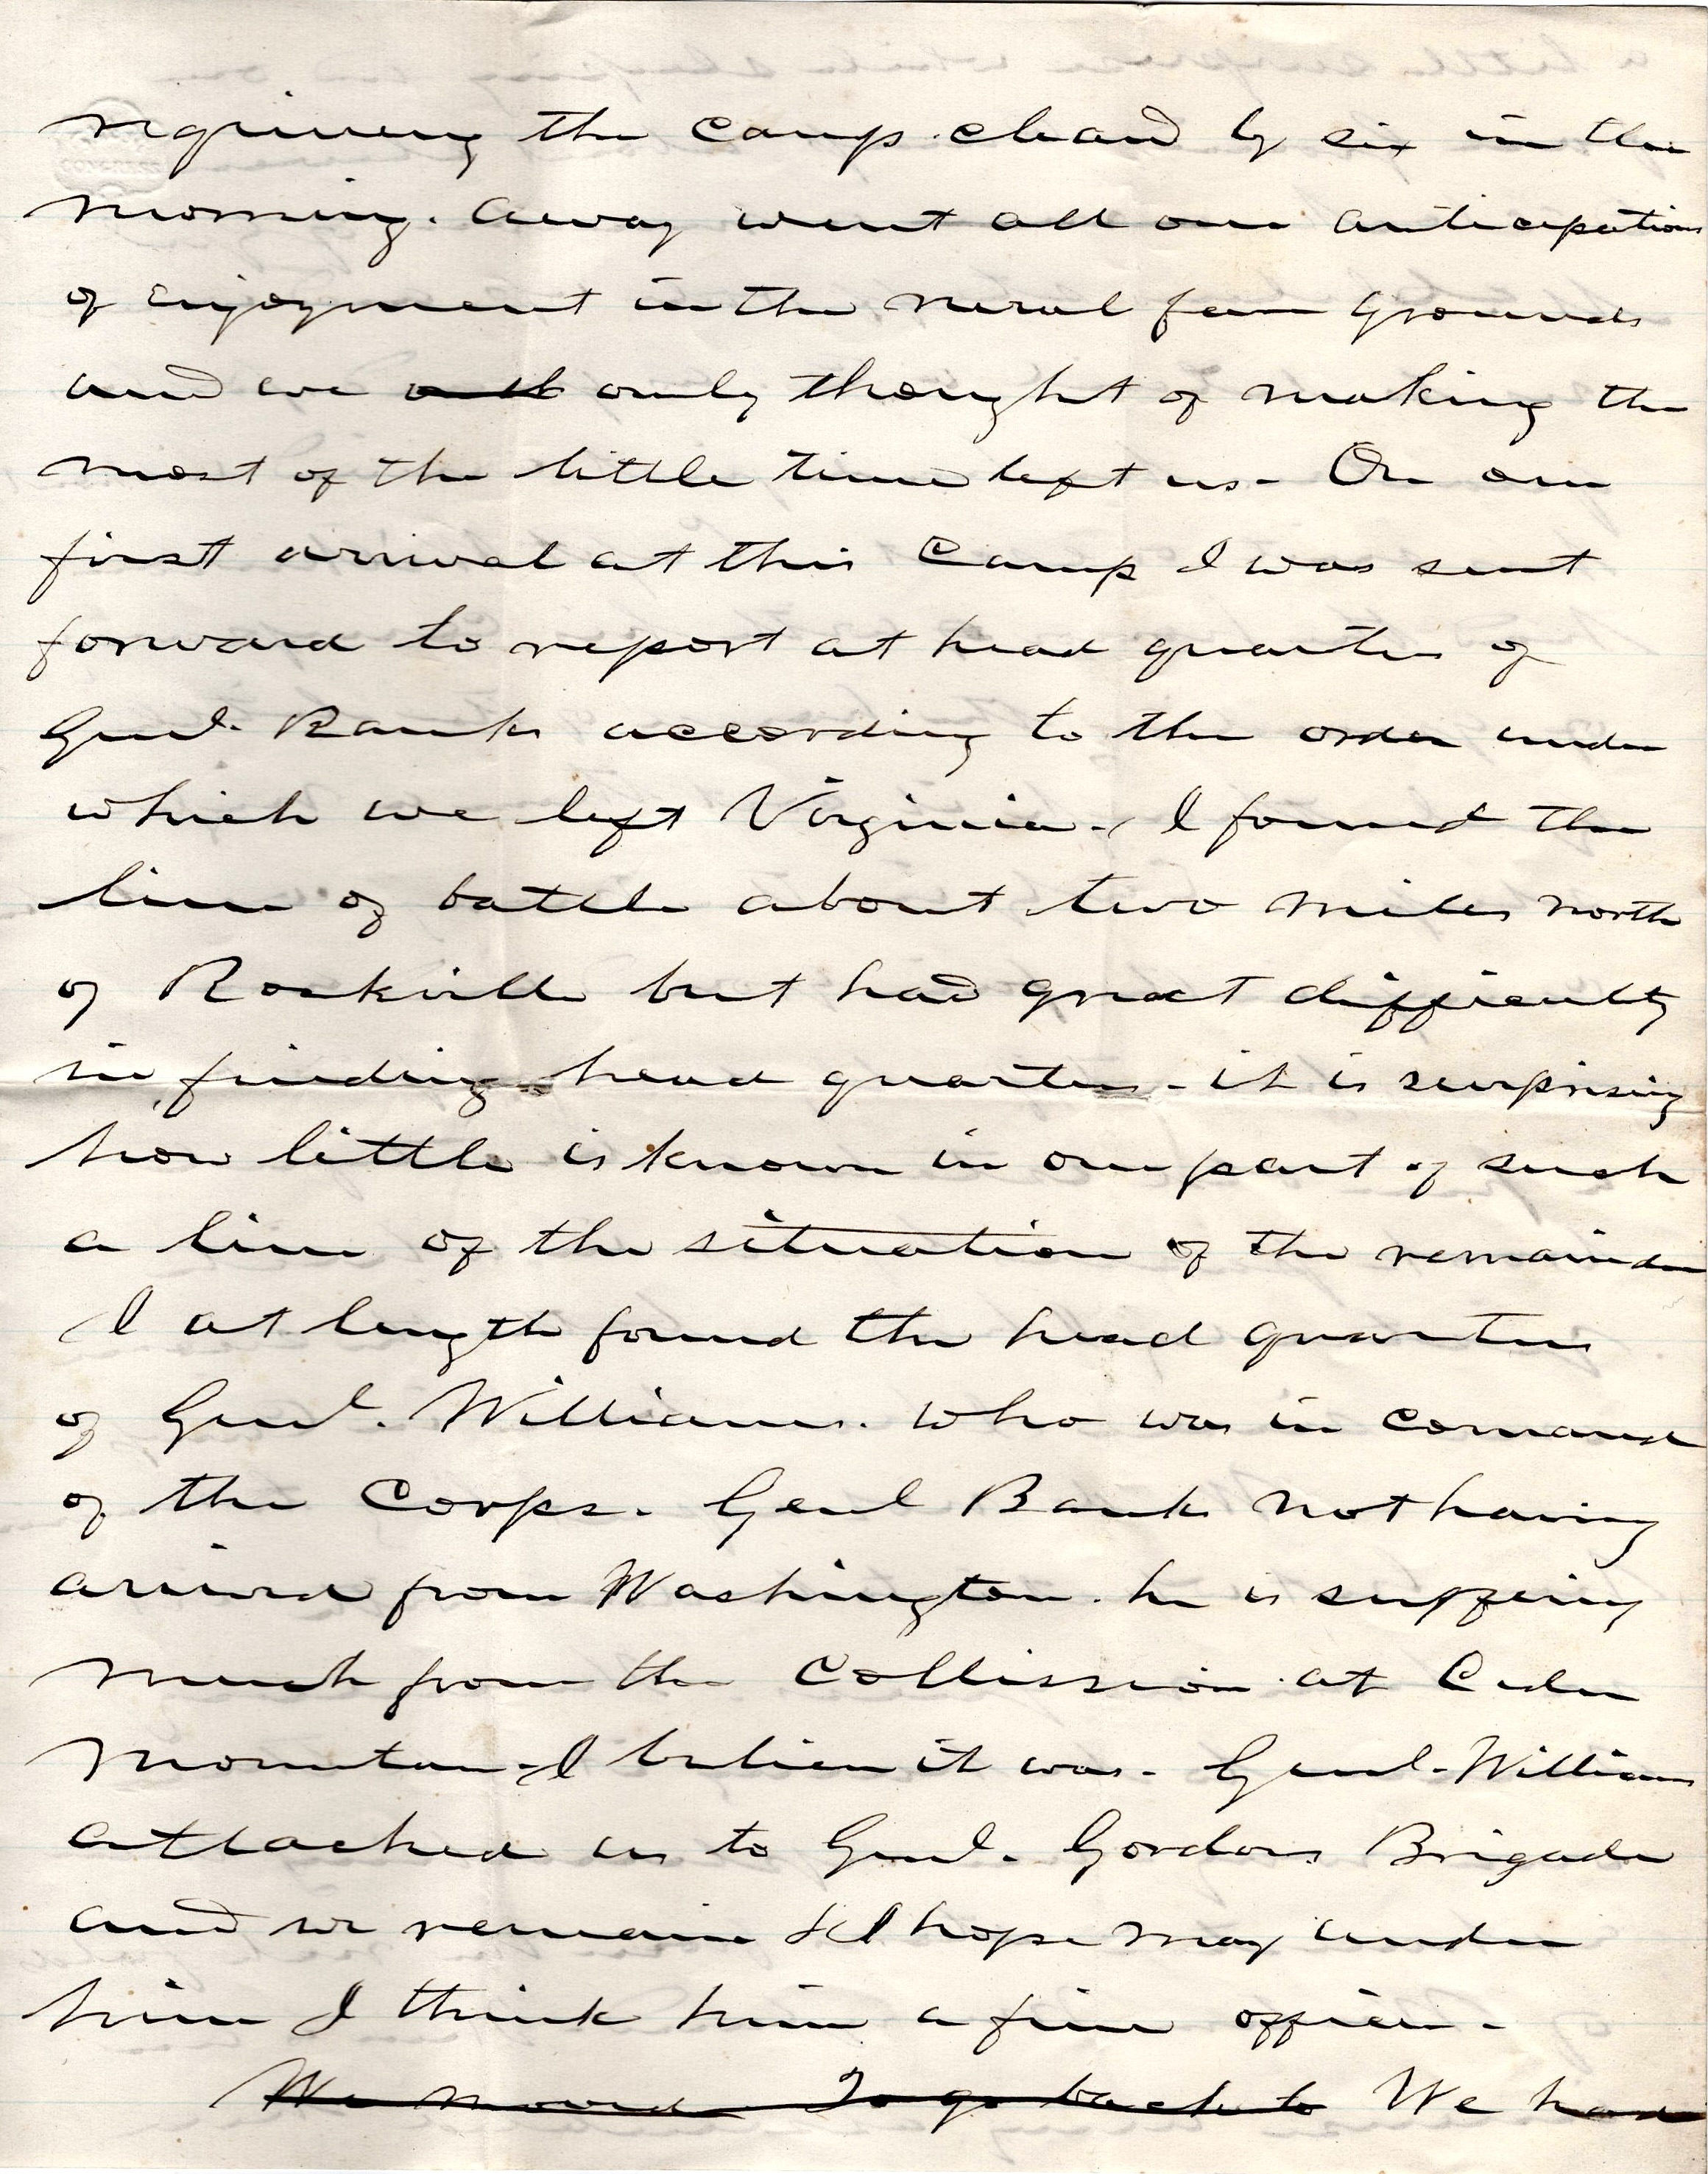 requiring the camp cleaned by six in the
morning. Away went all our anticipations
of enjoyment in the rural fair grounds
and we only thought of making the
most of the little time left us - On our
first arrival at this Camp I was sent
forward to report at head quarters of
Genl. Banks according to the order under
which we left Virginia - I found the
line of battle about two miles north
of Rockville but had great difficulty
in finding head quarters - it is surprising
how little is known in one part of such
a line of the situation of the remainder
I at length found the head quarters
of Genl. Williams. who was in comand
of the Corps. Genl Banks not having
arrived from Washington. he is suffering
much from the Collission at Cedar
Mountain - I believe it was - Genl - Williams
attached us to Genl. Gordons Brigade
and we remain & I hope may under
him I think him a fine officer -
We moved To go back to We had